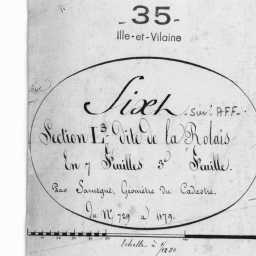 - 35 -
Ille-et-Vilaine
Sixt sur AFF.
Section L3 dite de la Rolais
En 7 Feuilles 3e Feuille.
Par Géomètre du Cadastre.
Du N° 729 à 1179.
Echelle à 1/1250